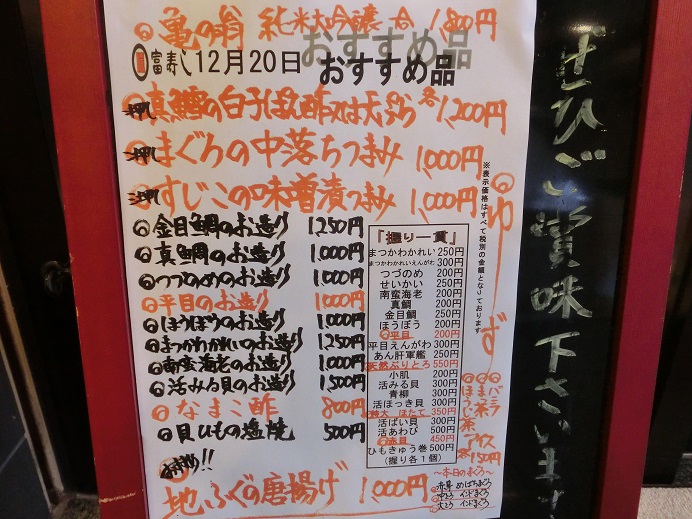 亀の翁 純米大吟醸 一合 1,800円
富寿し 12月20日 おすすめ品
押し 真鱈の白子ぽん酢又は天ぷら 各1,200円
押し まぐろの中落ちつまみ 1,000円
すじこの味噌漬つまみ 1,000円
金目鯛のお造り 1,250円
真鯛のお造り 1,000円
つづのめのお造り 1,000円
平目のお造り 1,000円
ほうぼうのお造り 1,000円
まつかわかれいのお造り 1,250円
南蛮海老のお造り 1,000円
活みる貝のお造り 1,500円
なまこ酢 800円
貝ひもの塩焼 500円
おすすめ!!
地ふぐの唐揚げ 1,000円
『握り一貫』
まつかわかれい 250円
まつかわかれいえんがわ 300円
つづのめ 200円
せいかい 200円
南蛮海老 200円
真鯛 200円
金目鯛 250円
ほうぼう 200円
平目 200円
平目えんがわ 300円
あん肝軍艦 250円
天然ぶりとろ 550円
小肌 200円
活みる貝 300円
青柳 200円
活ほっき貝 300円
特大 ほたて 350円
活ばい貝 300円
活あわび 500円
赤貝 450円
ひもきゅう巻 500円
(握り各1個)
※表示価格はすべて税別の金額となっております
ゆず
バニラ
まっ茶
ほうじ茶
アイス
各150円
~本日のまぐろ~
赤身 めばちまぐろ
中とろ インドまぐろ
大とろ インドまぐろ
ぜひご賞味下さいませ